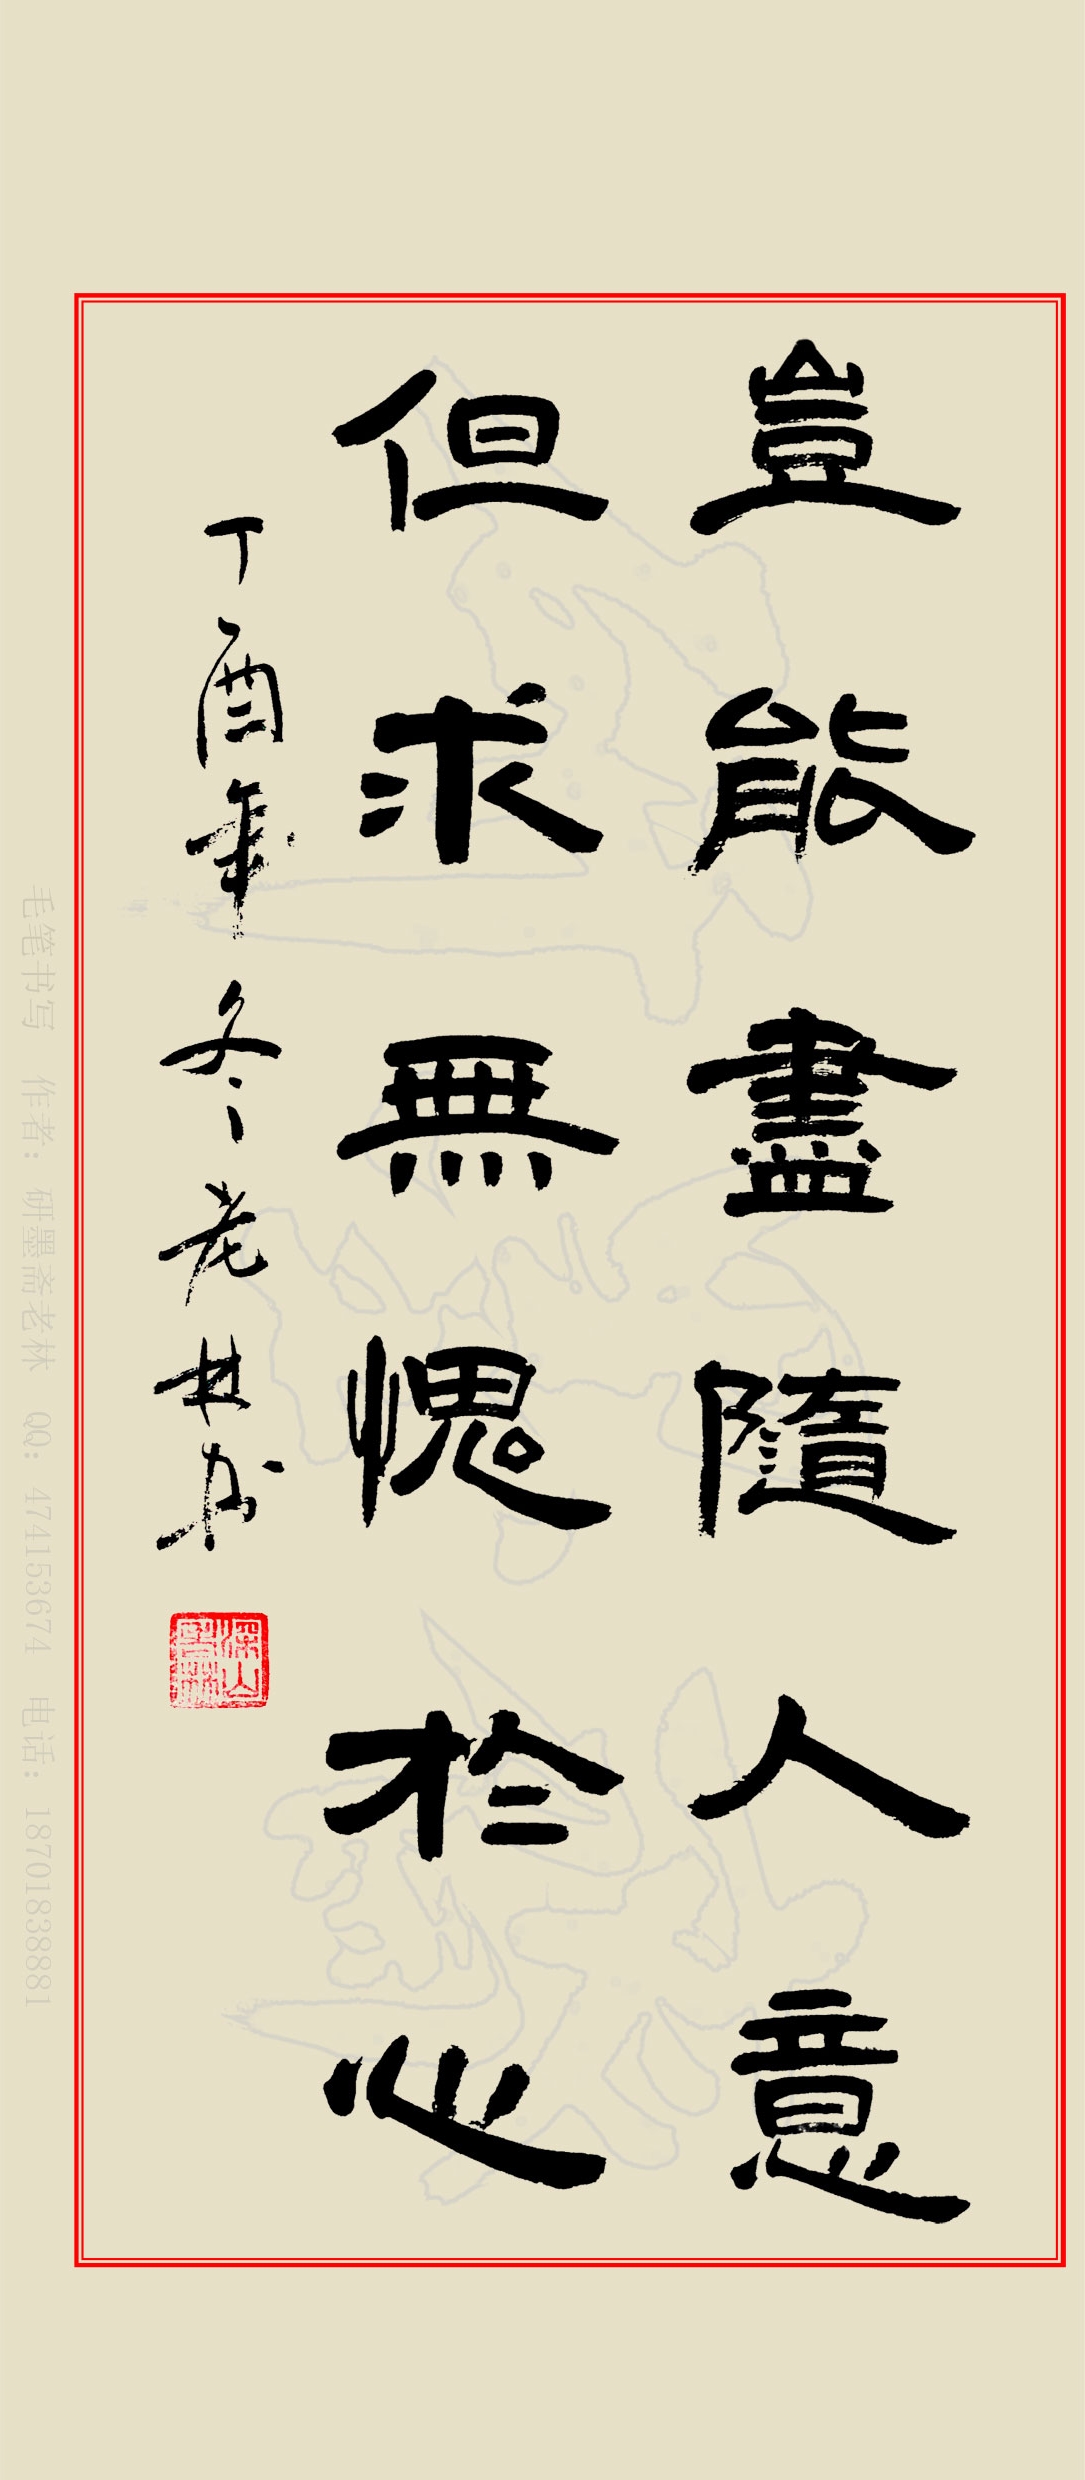 豈能盡隨人意
但求無愧於心
丁酉年冬老林书
深山老林
毛笔书写 作者：研墨斋老林 QQ：474153674 电话：18701838881